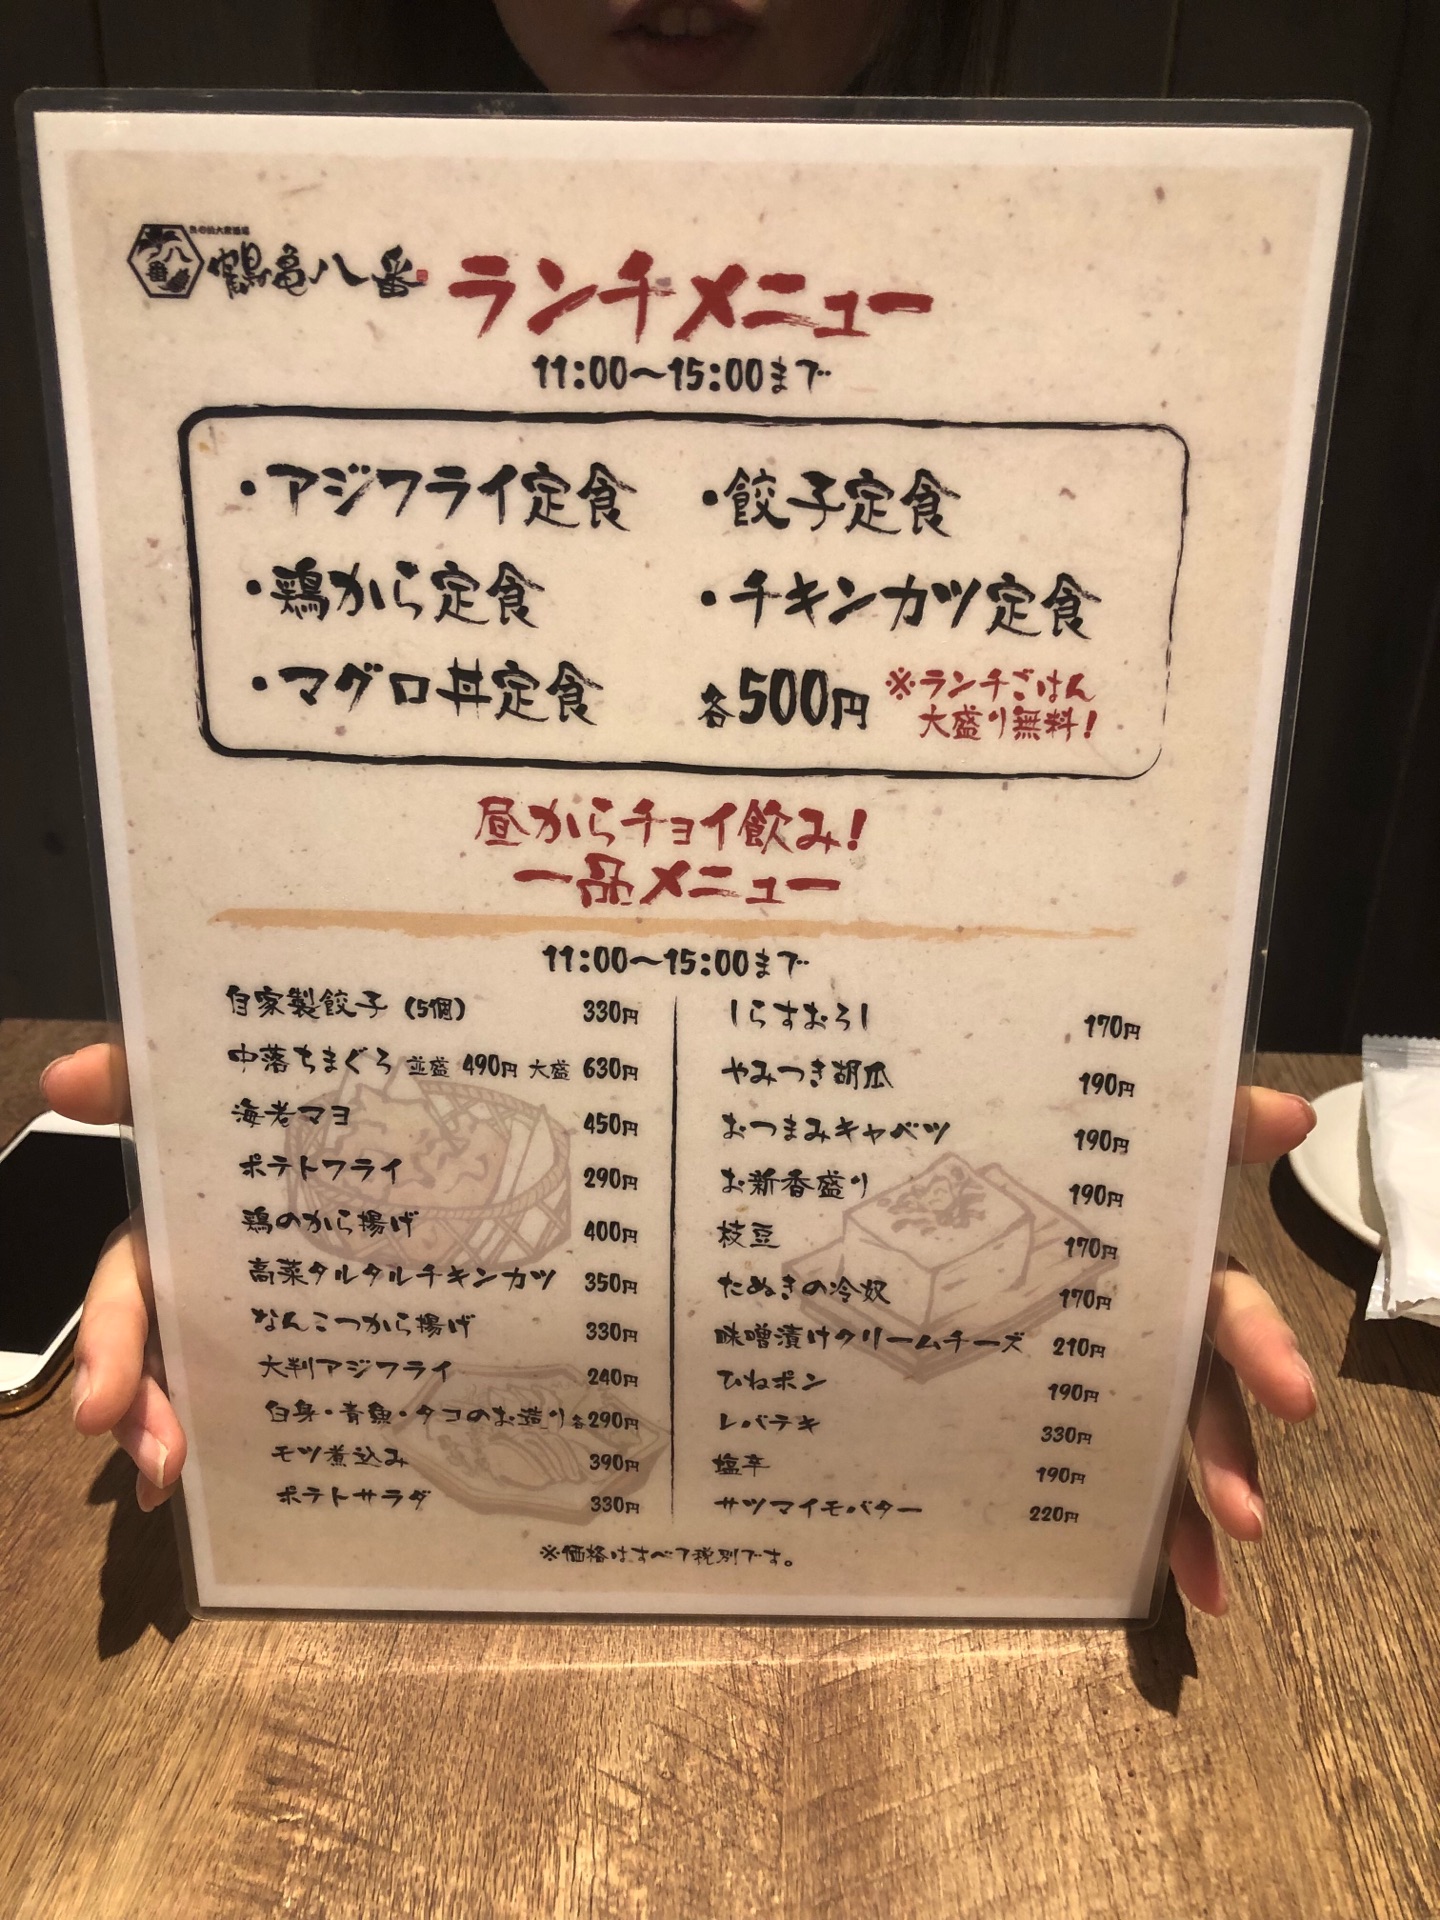 鶴亀八番 ランチメニュー
11:00〜15:00まで
・アジフライ定食
・鶏から定食
・マグロ丼定食
・餃子定食
・チキンカツ定食
各500円
※ランチごはん
大盛り無料!
昼からチョイ飲み!
一品メニュー
11:00〜15:00まで
自家製餃子(5個) 330円
中落ちまぐろ 並盛 490円 大盛 630円
海老マヨ 450円
ポテトフライ 290円
鶏のから揚げ 400円
高菜タルタルチキンカツ 350円
なんこつから揚げ 330円
大判アジフライ 240円
白身・青魚・タコのお造り各290円
モツ煮込み 390円
ポテトサラダ 330円
しらすおろし 170円
やみつき胡瓜 190円
おつまみキャベツ 190円
お新香盛り 190円
枝豆 170円
たぬきの冷奴 170円
味噌漬けクリームチーズ 210円
ひねポン 190円
レバテキ 330円
塩辛 190円
サツマイモバター 220円
※価格はすべて税別です。